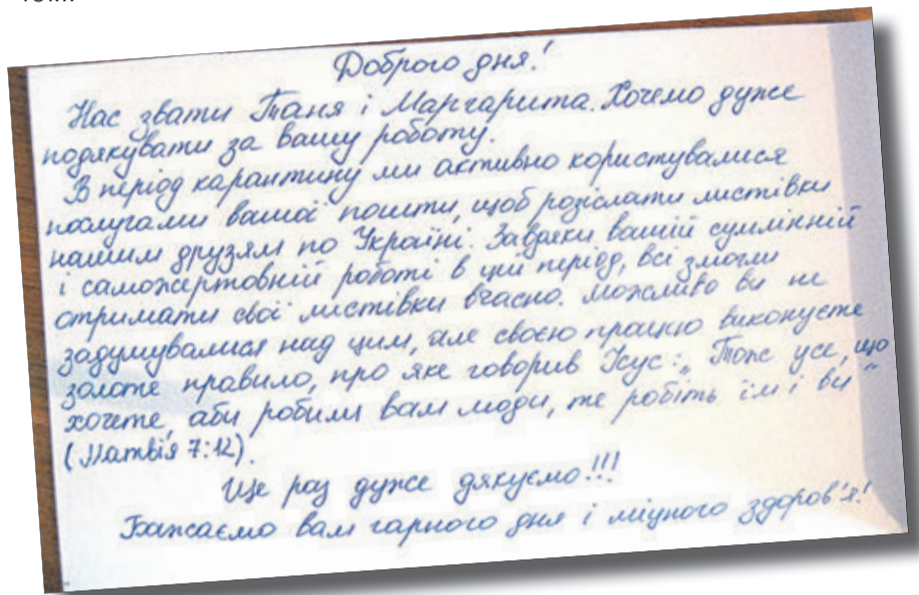 Доброго дня!
Нас звати Таня і Маргарита. Хочемо дуже
подякувати за вашу роботу.
В період карантину ми активно користувалися
послугами вашої пошти, щоб розіслати листівки
нашим друзям по Україні. Завдяки вашій сумлінній
і саможертовній роботі в цей період, всі змогли
отримати свої листівки вчасно. Можливо ви не
задумувалися над цим, але своєю працею виконуєте
золоте правило, про яке говорив Ісус: „Тож усе, що
хочете, аби робили вам люди, те робіть їм і ви“
(Матвія 7:12).
Ще раз дуже дякуємо!!!
Бажаємо вам гарного дня і міцного здоров'я!